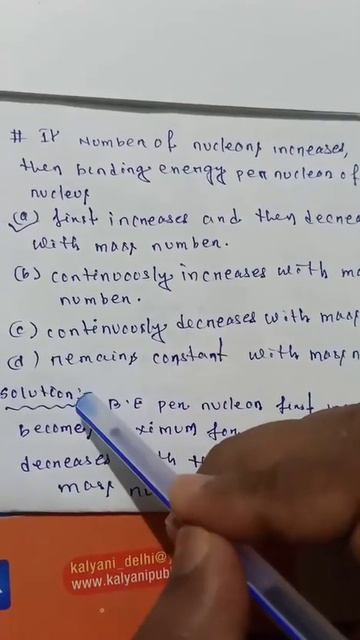 # If Number of nucleons increases,
then binding energy per nucleon of
nucleus
(a) first increases and then decrea
with mass number.
(b) continuously increases with ma
number.
(c) continuously decreases with mass
(d) remains constant with mass n
Solution:- B.E per nucleon first
becomes ximum for
decreases th
mass n
kalyani_delhi@
www.kalyanipub